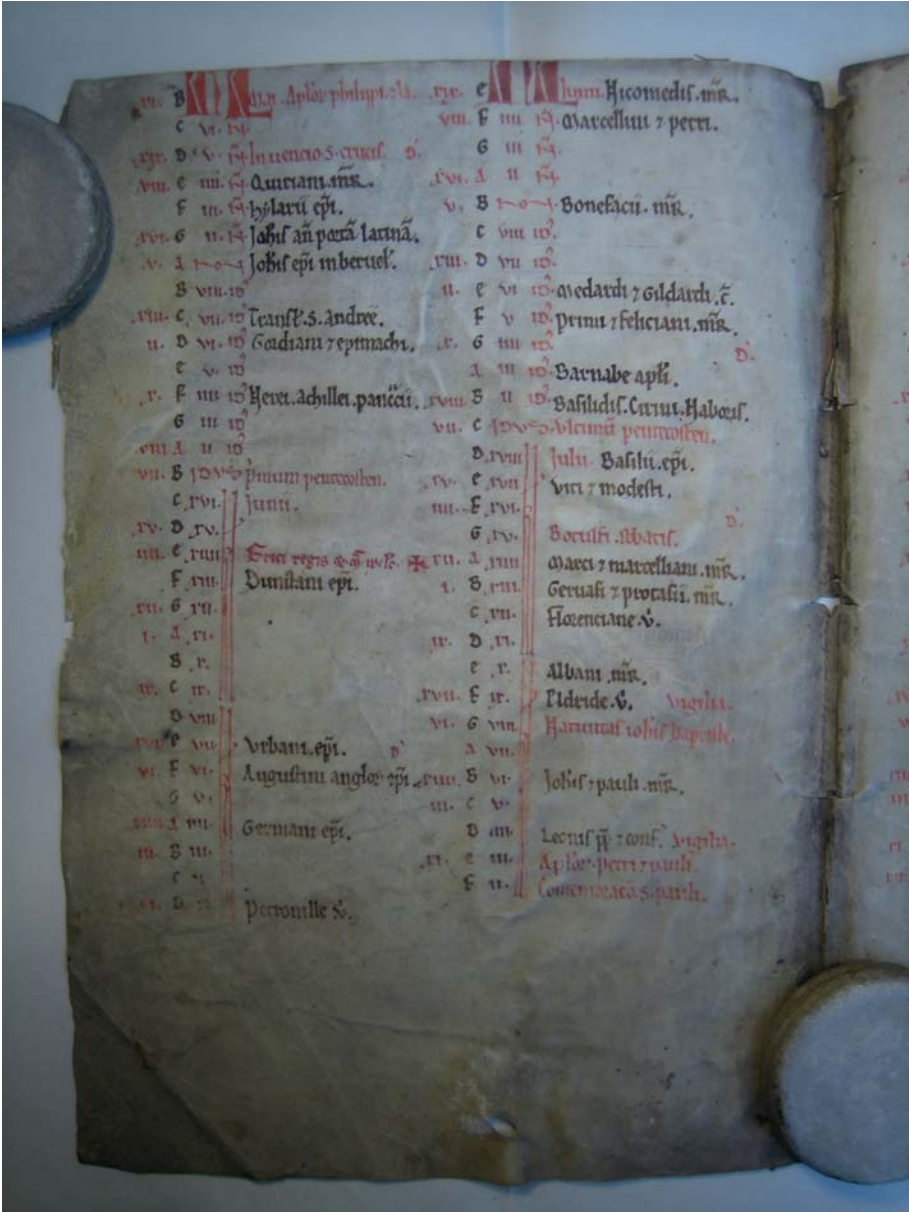 .xi. B KL Maii Aplõr philipi ⁊ Ia.
C vi. N̄.
.xix. D v. N̄. Inuencio s. crucis. D'.
.viii. e iiii. N̄ Quiriani. mr̄.
F iii. N̄ hylarii ep̄i.
.xvi. G ii. N̄ Joh̄is an̄ portā latinā.
.v. A Non Joh̄is ep̄i in beruel'.
B viii. id'
.xiii. C vii. id' Transl'. s. Andree.
ii. D vi. id' Gordiani ⁊ epimachi.
e v. id'
.x. F iiii id' Nerei. achillei. pancͨii.
G iii id'
.xviii A ii id'
vii. B IDVS p'mum pentecosten.
C .xvii. Junii.
.xv. D .xvi.
iiii. e .xv. Erici regis ⁊
F .xiiii. Dunstani ep̄i.
.xii. G .xiii.
i. A .xii.
B .xi.
ix. C .x.
D .ix.
e viii. Vrbani. ep̄i. D'
vi. F vii. Augustini anglor' ep̄i
G vi.
A v. Germani ep̄i.
iii. B iiii.
C iii
D Petronille v̄.
.xix. e KL Iunii. Nicomedis. mr̄.
viii. F iiii N̄. Marcellini ⁊ petri.
G iii N̄.
.xvi. A ii N̄.
v. B Non Bonefacii. mr̄.
C viii id'.
.xiii. D vii id'.
ii. e vi id'. Medardi ⁊ Gildardi. c̄.
F v id'. Primi ⁊ feliciani. mr̄.
.x. G iiii id'. D'.
A iii id'. Barnabe apl̄i.
.xviii B ii id'. Basilidis. Cirini. Naboris.
vii. C IDVS Vltimū pentecosten.
D .xviii Julii Basilii. ep̄i.
.xv. e .xvii Viti ⁊ modesti.
iiii. F .xvi. D'.
G .xv. Botulfi abbatis.
.xii. A .xiiii Marci ⁊ marcelliani. mr̄.
i. B .xiii. Geruasi ⁊ protasii. mr̄.
C .xii. Florenciane. v̄.
ix. D .xi.
e .x. Albani. mr̄.
.xvii. F ix. Eldride. v̄. Vigilia.
vi. G viii. Natiuitas ioh̄is baptiste.
A vii.
.xiiii. B vi. Joh̄is ⁊ pauli. mr̄.
iii. C v.
D iiii. Leonis pp̄ ⁊ conf'. Vigilia.
.xi. e iii. Aplõr petri ⁊ pauli.
F ii. Comemoracō s. pauli.